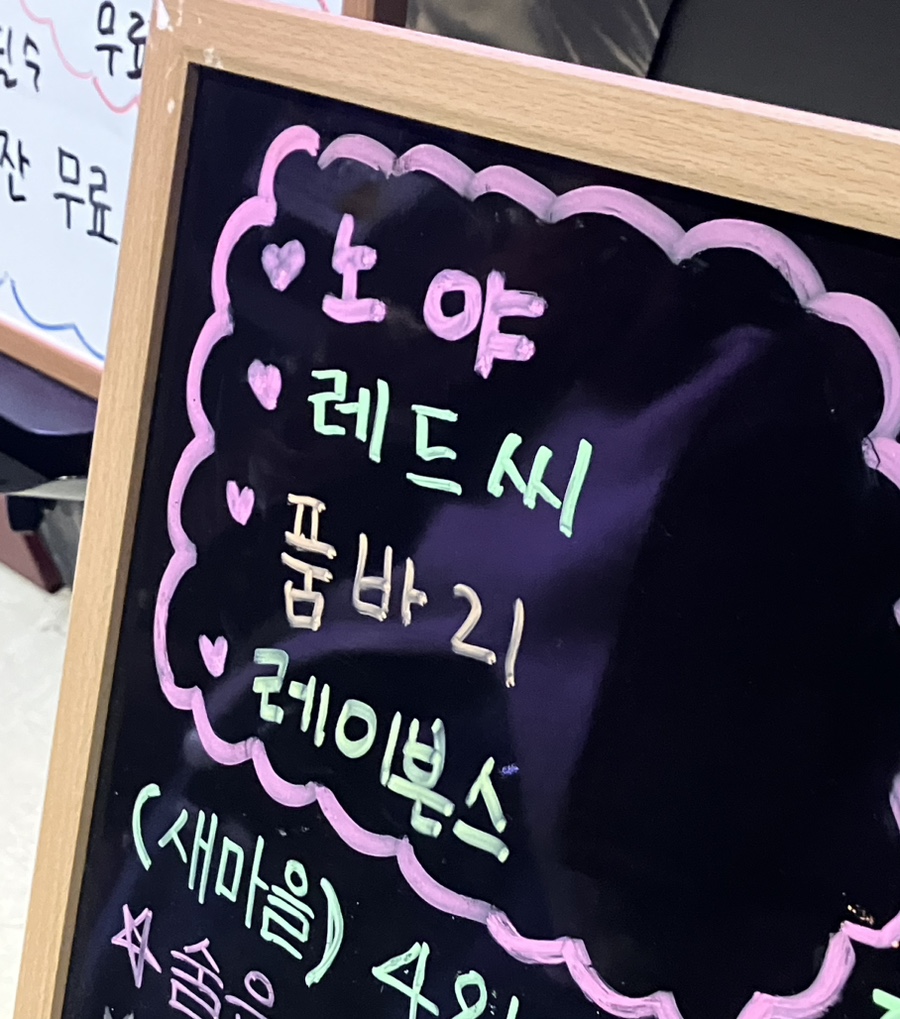 무료
잔 무료
노야
레드씨
품바리
레이븐스
(새마을) 4월
숨은